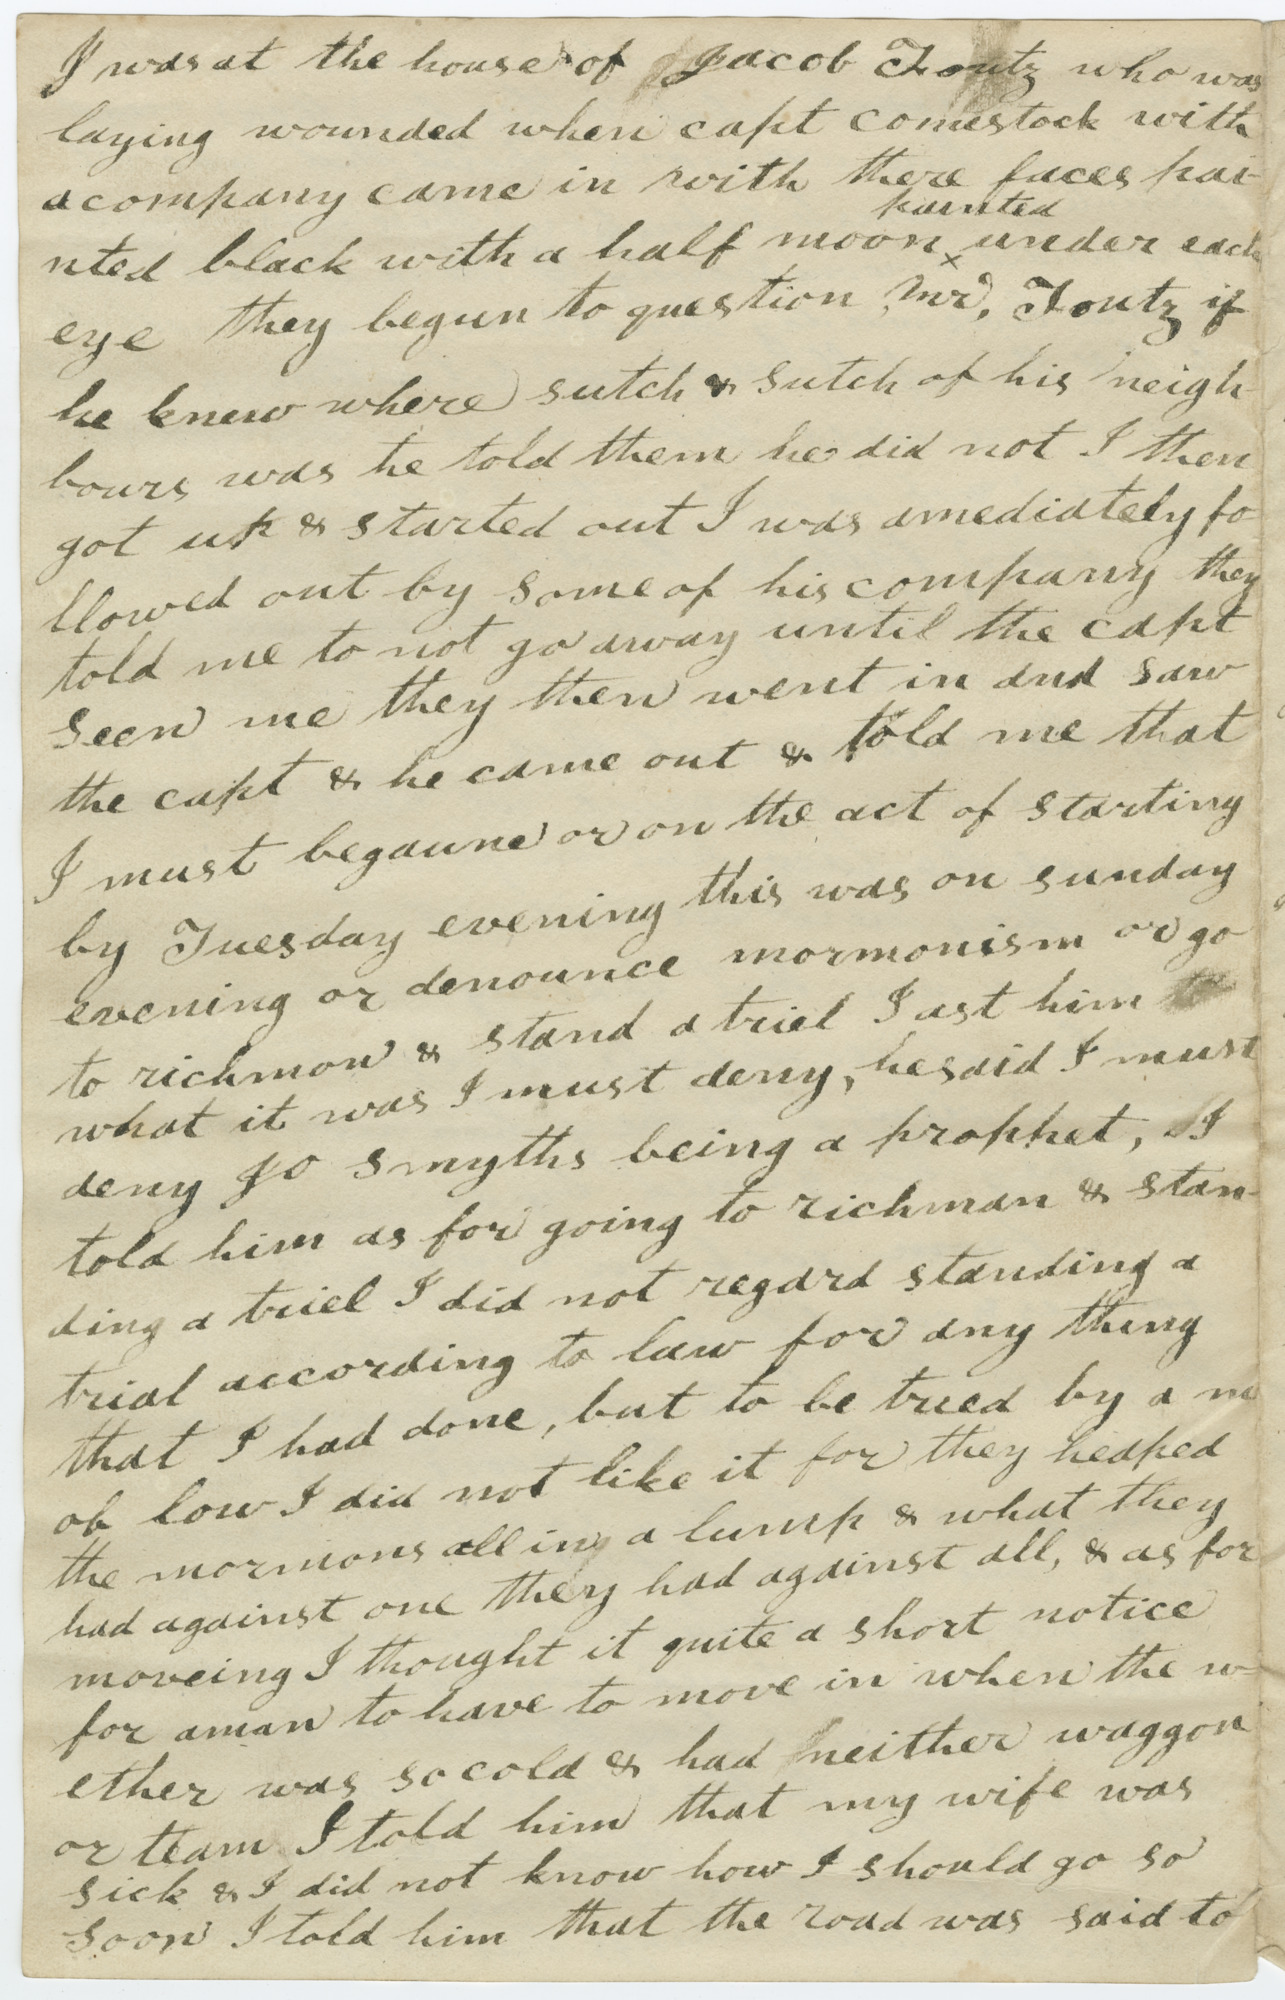 I was at the house of Jacob Foutz who was
laying wounded when capt comestock with
a company came in with there faces pai-
painted
nted black with a half moon x under each
eye they begun to question Mr. Foutz if
he knew where sutch & sutch of his neigh-
bours was he told them he did not I then
got up & started out I was amediately fo-
llowed out by some of his company they
told me to not go away until the capt
seen me they then went in and saw
the capt & he came out & told me that
I must begaune or on the act of starting
by Tuesday evening this was on sunday
evening or denounce mormonism or go
to richmon & stand a triel I ast him
what it was I must deny, he said I must
deny Jo smyths being a prophet, I
told him as for going to richman & stan-
ding a triel I did not regard standing a
trial according to law for any thing
that I had done, but to be tried by a m
ob low I did not like it for they heaped
the mormons all in a lump & what they
had against one they had against all, & as for
moveing I thought it quite a short notice
for a man to have to move in when the w-
ether was so cold & had neither waggon
or team I told him that my wife was
sick & I did not know how I should go so
soon I told him that the road was said to